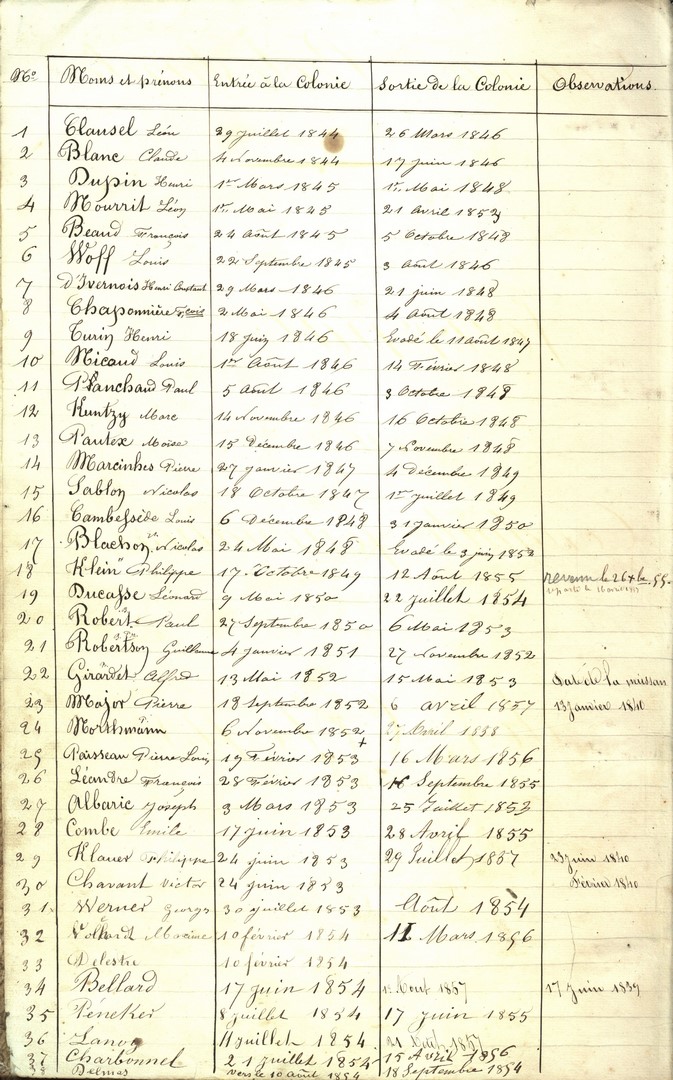 No Noms et prénoms Entrée à la Colonie Sortie de la Colonie Observations.
1 Clausel Léon 29 juillet 1844 26 Mars 1846
2 Blanc Claude 4 Novembre 1844 17 juin 1846
3 Dupin Henri 1er Mars 1845 1er Mai 1848
4 Nourrit Léon 1er Mai 1845 21 Avril 1852
5 Beaud François 24 Août 1845 5 Octobre 1848
6 Woff Louis 22 Septembre 1845 3 Août 1846
7 d'Ivernois Henri Constant 29 Mars 1846 21 juin 1848
8 Chaponnière 2 Mai 1846 4 Août 1848
9 Turin Henri 18 juin 1846 Evadé le 11 août 1847
10 Nicaud Louis 1er Août 1846 14 Février 1848
11 Planchaud Paul 5 août 1846 3 Octobre 1848
12 Kuntzy Marc 14 Novembre 1846 16 Octobre 1848
13 Pautex Moïse 15 Décembre 1846 7 Novembre 1848
14 Marcinhes Pierre 27 janvier 1847 4 décembre 1849
15 Sablon Nicolas 18 Octobre 1847 1er juillet 1849
16 Cambesside Louis 6 Décembre 1848 31 janvier 1850
17 Blachon Nicolas 24 Mai 1848 Evadé le 3 juin 1852
18 Klein Philippe 17 Octobre 1849 12 Août 1855 revenu le 26 55.
19 Ducasse Léonard 9 Mai 1850 22 juillet 1854
20 Robert Paul 27 Septembre 1850 6 Mai 1853
21 Robertson Guillaume 4 janvier 1851 27 Novembre 1852
22 Girardet Alfred 13 Mai 1852 15 Mai 1853 Date de la naissan
23 Major Pierre 18 Septembre 1852 6 avril 1857 13 janvier 1840
24 Northmann 6 Novembre 1852 27 Avril 1858
25 Paisseau Pierre Louis 19 Février 1853 + 16 Mars 1856
26 Léandre François 28 Février 1853 16 Septembre 1855
27 Albaric Joseph 3 Mars 1853 25 Juillet 1853
28 Combe Emile 17 juin 1853 28 Avril 1855
29 Klauer Philippe 24 juin 1853 29 Juillet 1857 23 juin 1840
30 Chavant Victor 24 juin 1853 Février 1840
31 Werner George 30 juillet 1853 Août 1854
32 Volkard Maxime 10 février 1854 11 Mars 1856
33 Delestre 10 février 1854
34 Bellard 17 juin 1854 1er Août 1857 17 juin 1839
35 Péneker 8 juillet 1854 17 juin 1855
36 11 juillet 1854 21 1857
37 Charbonnel 21 juillet 1854 15 Avril 1856
38 Delmas vers le 10 août 1854 18 Septembre 1854